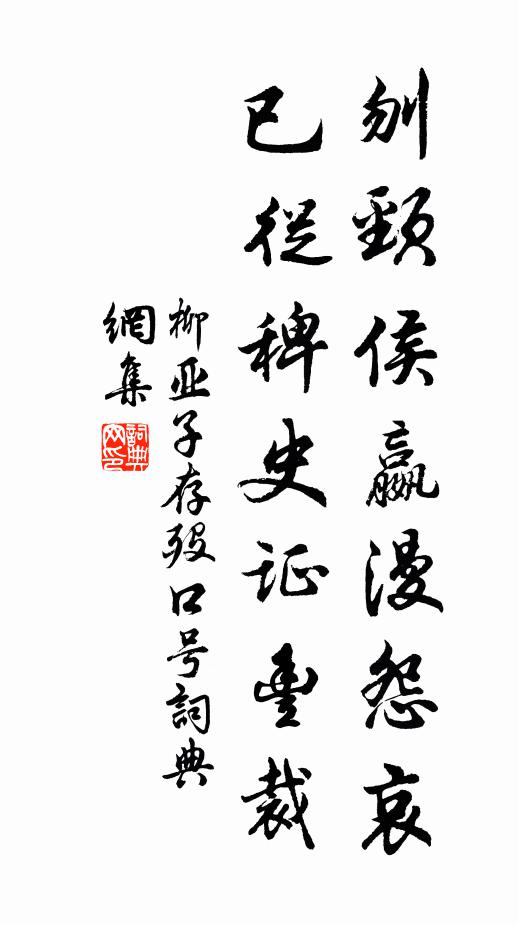 刎頸侯嬴漫怨哀
已從稗史证豊裁
柳亚子存殁口号詞典
網集
詞典网印